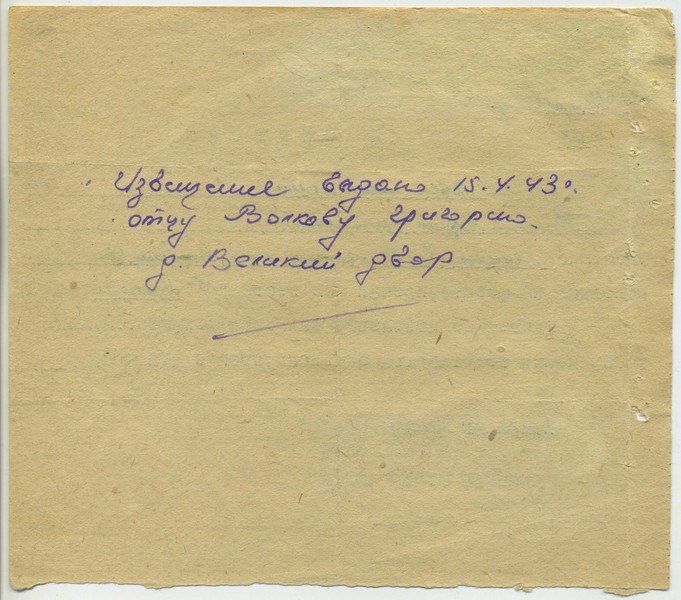 Извещение выдано 15.4.43г.
отцу Волкову Григорию.
д. Великий двор